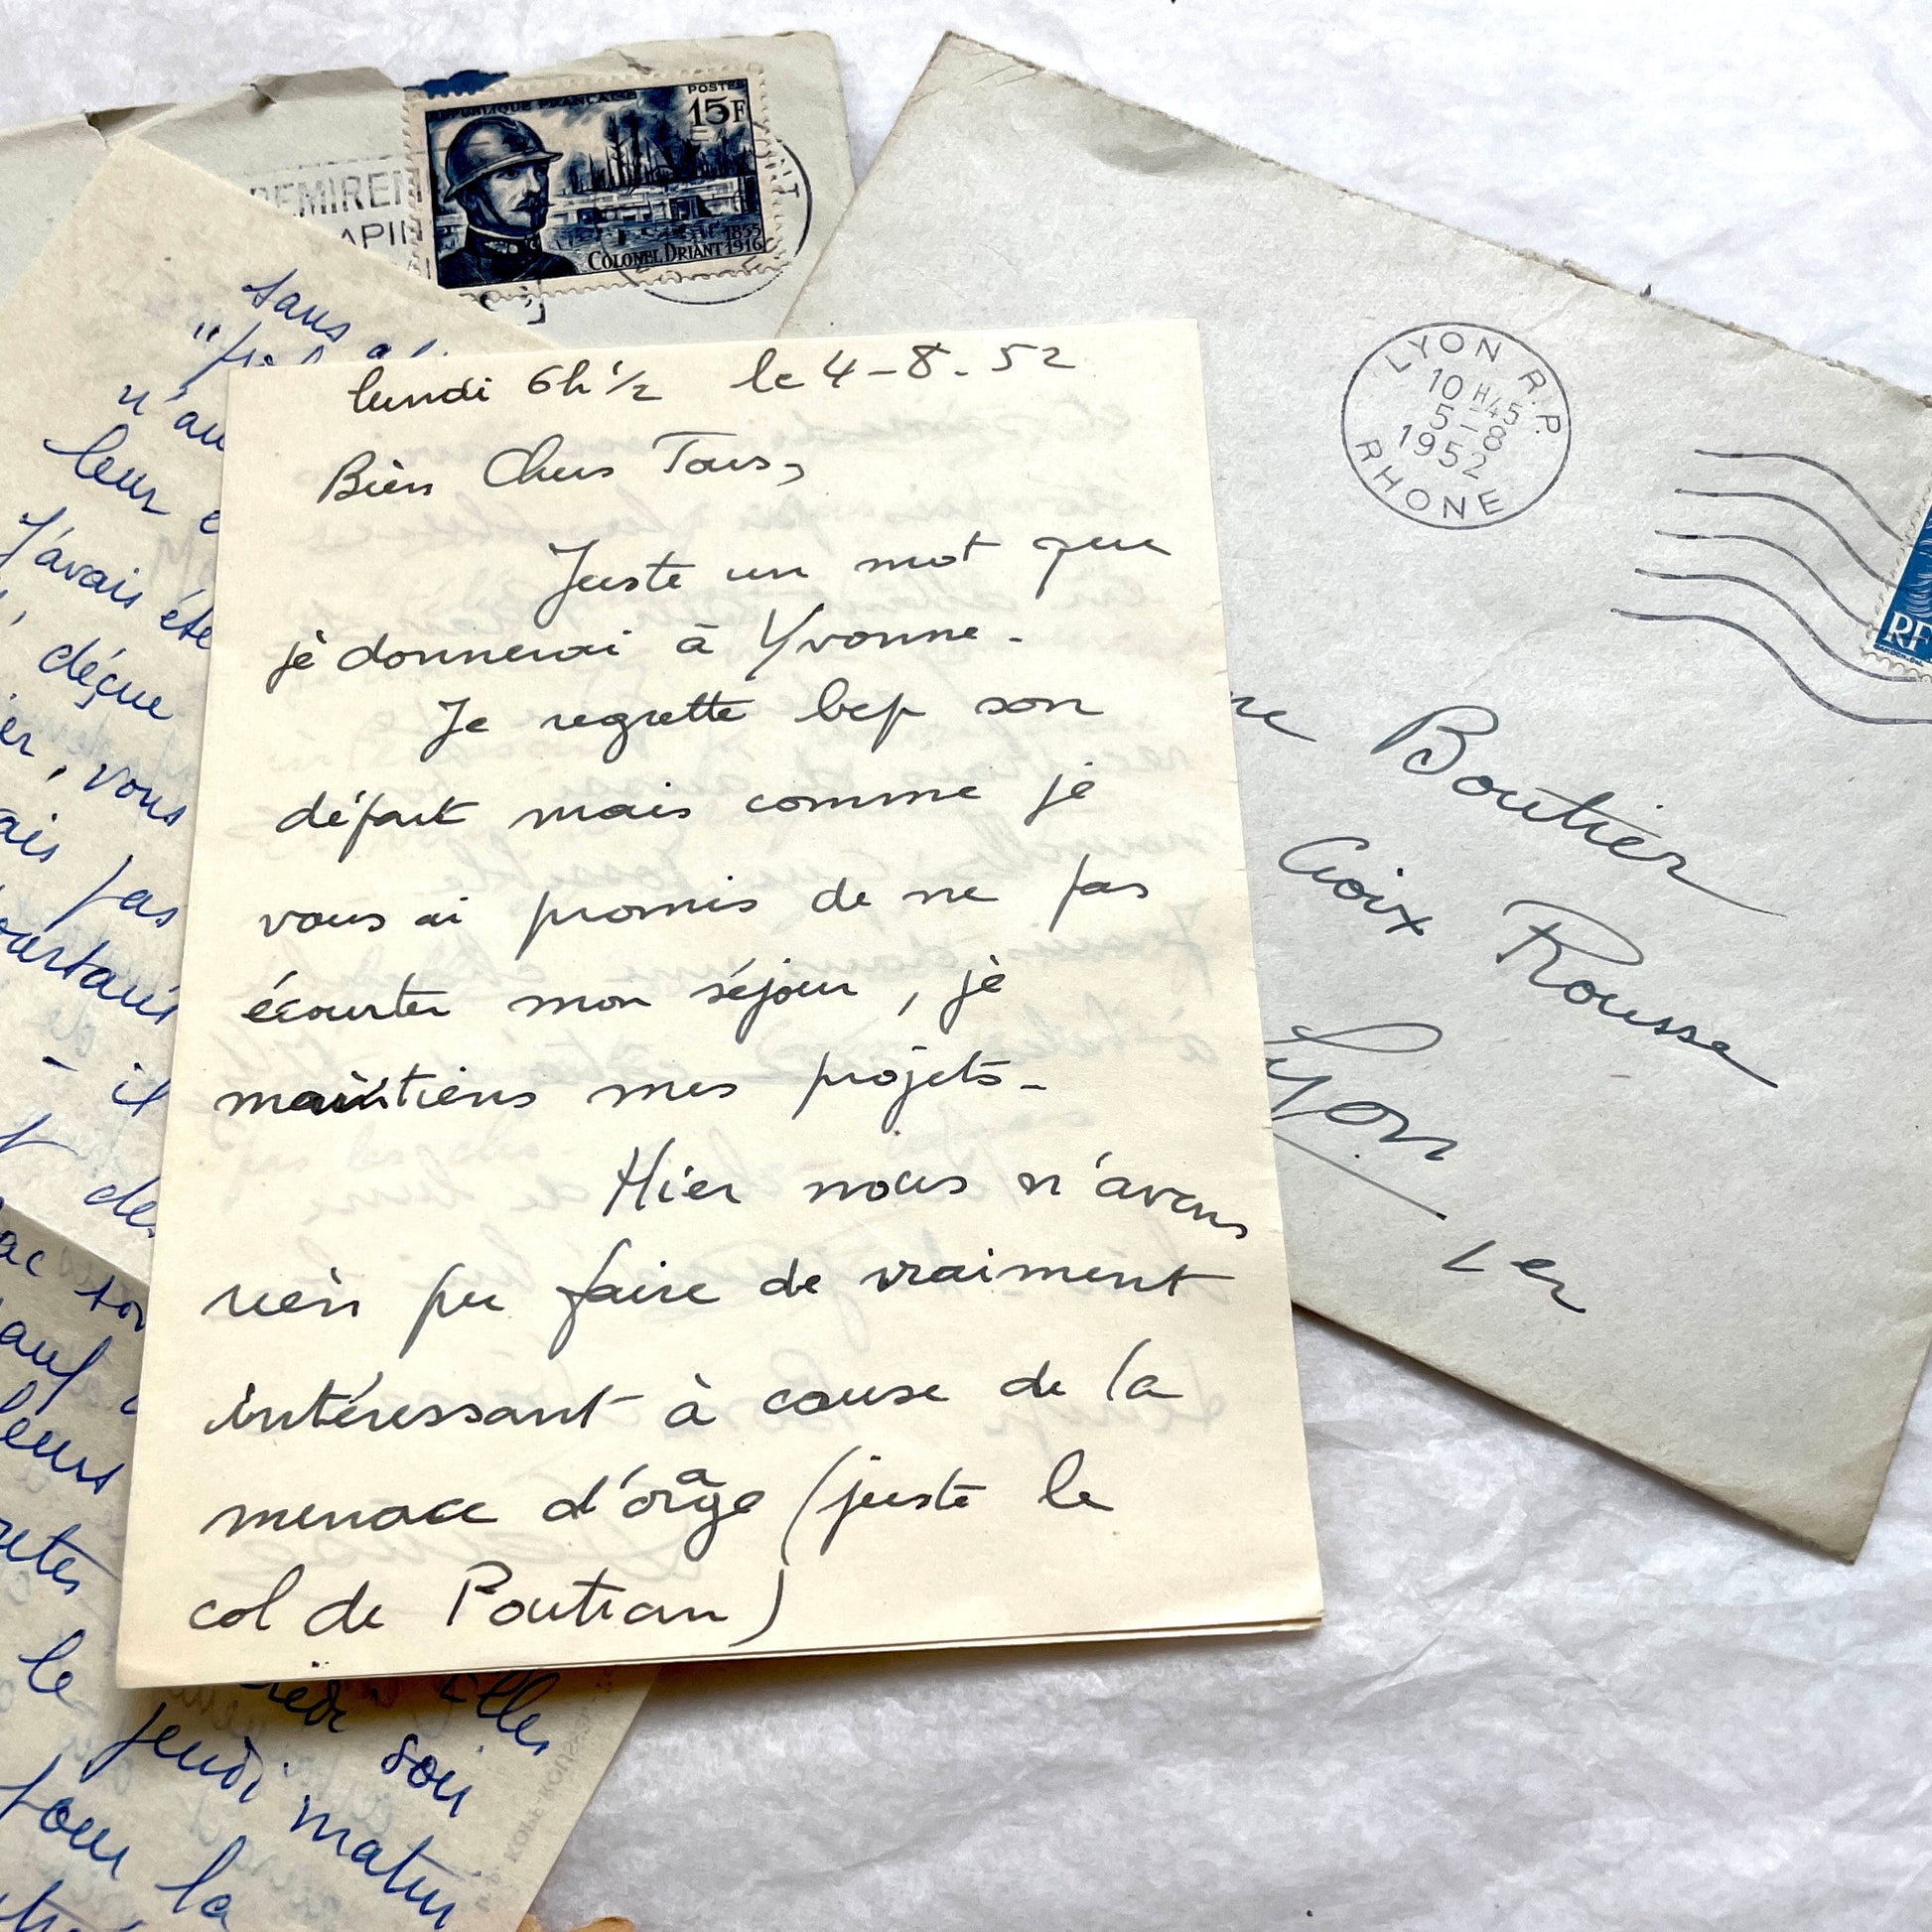 REPUBLIQUE FRANÇAISE
POSTES
15F
1855
COLONEL DRIANT 1916
LYON R.P.
10 H45
5-8
1952
RHONE
RF
Boutier
Croix Rousse
Lyon
1er
lundi 6h ½ le 4-8.52
Bien Chers Tous,
Juste un mot que
je donnerai à Yvonne.
Je regrette bcp son
départ mais comme je
vous ai promis de ne pas
écourter mon séjour, je
maintiens mes projets-
Hier nous n'avons
rien pu faire de vraiment
intéressant à cause de la
menace d'orage (juste le
col de Poutran)
sans
n'au
leur
J'avais été
déçue
vous
pas
- il
des
leurs
le
jeudi matin
soir
pour la